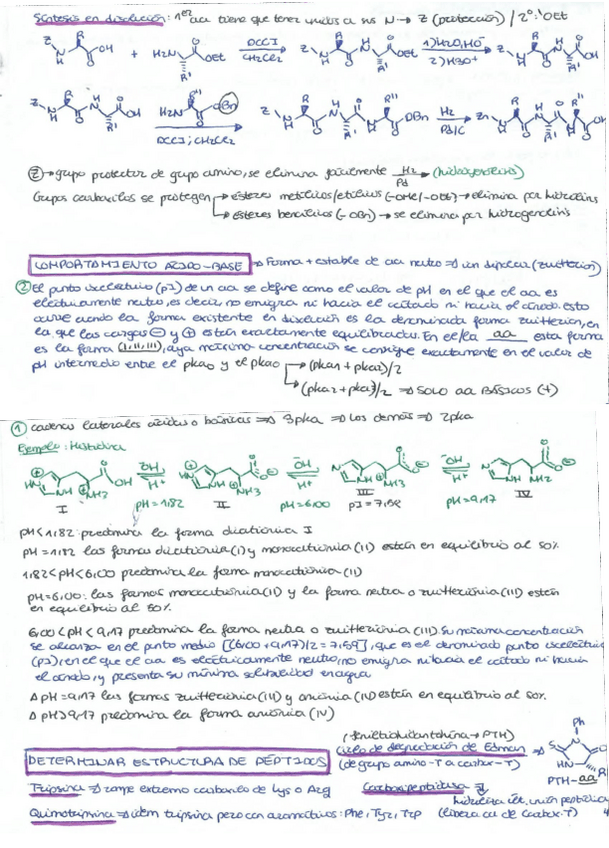 Síntesis en disolución: 1er aa tiene que tener unidos a sus N → Z (protección) / 2º: OEt
Z N H R O OH + H2N R' O OEt DCCI CH2Cl2 Z N H R O H N R' O OEt 1) H2O, HO- 2) H3O+ Z N H R O H N R' O OH
Z N H R O H N R' O OH H2N R'' O OBn DCCI; CH2Cl2 Z N H R O H N R' O N H R'' O OBn H2 Pd/C Zn N H R O H N R' O N H R'' O OH
Z → grupo protector de grupo amino, se elimina fácilmente H2 Pd (hidrogenolisis)
Grupos carboxilos se protegen → ésteres metílicos/etílicos (-OMe/-OEt) → elimina por hidrólisis
→ ésteres bencílicos (-OBn) → se elimina por hidrogenolisis
COMPORTAMIENTO ÁCIDO-BASE ⇒ Forma + estable de aa neutro ⇒ ión dipolar (zwitterión)
② El punto isoeléctrico (pI) de un aa se define como el valor de pH en el que el aa es
eléctricamente neutro, es decir, no emigra ni hacia el cátodo ni hacia el ánodo. esto
ocurre cuando la forma existente en disolución es la denominada forma zwitterión, en
la que las cargas ⊖ y ⊕ están exactamente equilibradas. En el/la aa esta forma
es la forma (I, II, III), cuya máxima concentración se consigue exactamente en el valor de
pH intermedio entre el pka y el pka → (pka1 + pka2)/2
→ (pka2 + pka3)/2 ⇒ SOLO aa BÁSICOS (+)
① cadenas laterales ácidas o básicas ⇒ 3pka ⇒ Los demás ⇒ 2pka
Ejemplo: Histidina
HN NH NH2 O OH -OH H+ HN NH NH3 O O -OH H+ N NH NH3 O O -OH H+ N NH NH2 O O
I pH=1,82 II pH=6,00 III pI=7,59 pH=9,17 IV
pH<1,82 predomina la forma dicatiónica I
pH=1,82 las formas dicatiónica (I) y monocatiónica (II) están en equilibrio al 50%.
1,82<pH<6,00 predomina la forma monocatiónica (II)
pH=6,00: las formas monocatiónica (II) y la forma neutra o zwitteriónica (III) están
en equilibrio al 50%.
6,00<pH<9,17 predomina la forma neutra o zwitteriónica (III). Su máxima concentración
se alcanza en el punto medio [(6,00+9,17)/2=7,59], que es el denominado punto isoeléctrico
(pI), en el que el aa es eléctricamente neutro, no emigra ni hacia el cátodo ni hacia
el ánodo, y presenta su mínima solubilidad en agua
A pH=9,17 las formas zwitteriónica (III) y aniónica (IV) están en equilibrio al 50%.
A pH>9,17 predomina la forma aniónica (IV)
(feniltiohidantoína → PTH)
Ciclo de degradación de Edman ⇒
DETERMINAR ESTRUCTURA DE PÉPTIDOS (de grupo amino-T a carbox-T)
Ph S N O HN R PTH-aa
Tripsina ⇒ rompe extremo carbonilo de Lys o Arg Carboxipeptidasa
hidroliza últ. unión peptídica
Quimotripsina ⇒ ídem tripsina pero con aromáticos: Phe, Tyr, Trp (libera aa de Carbox-T)